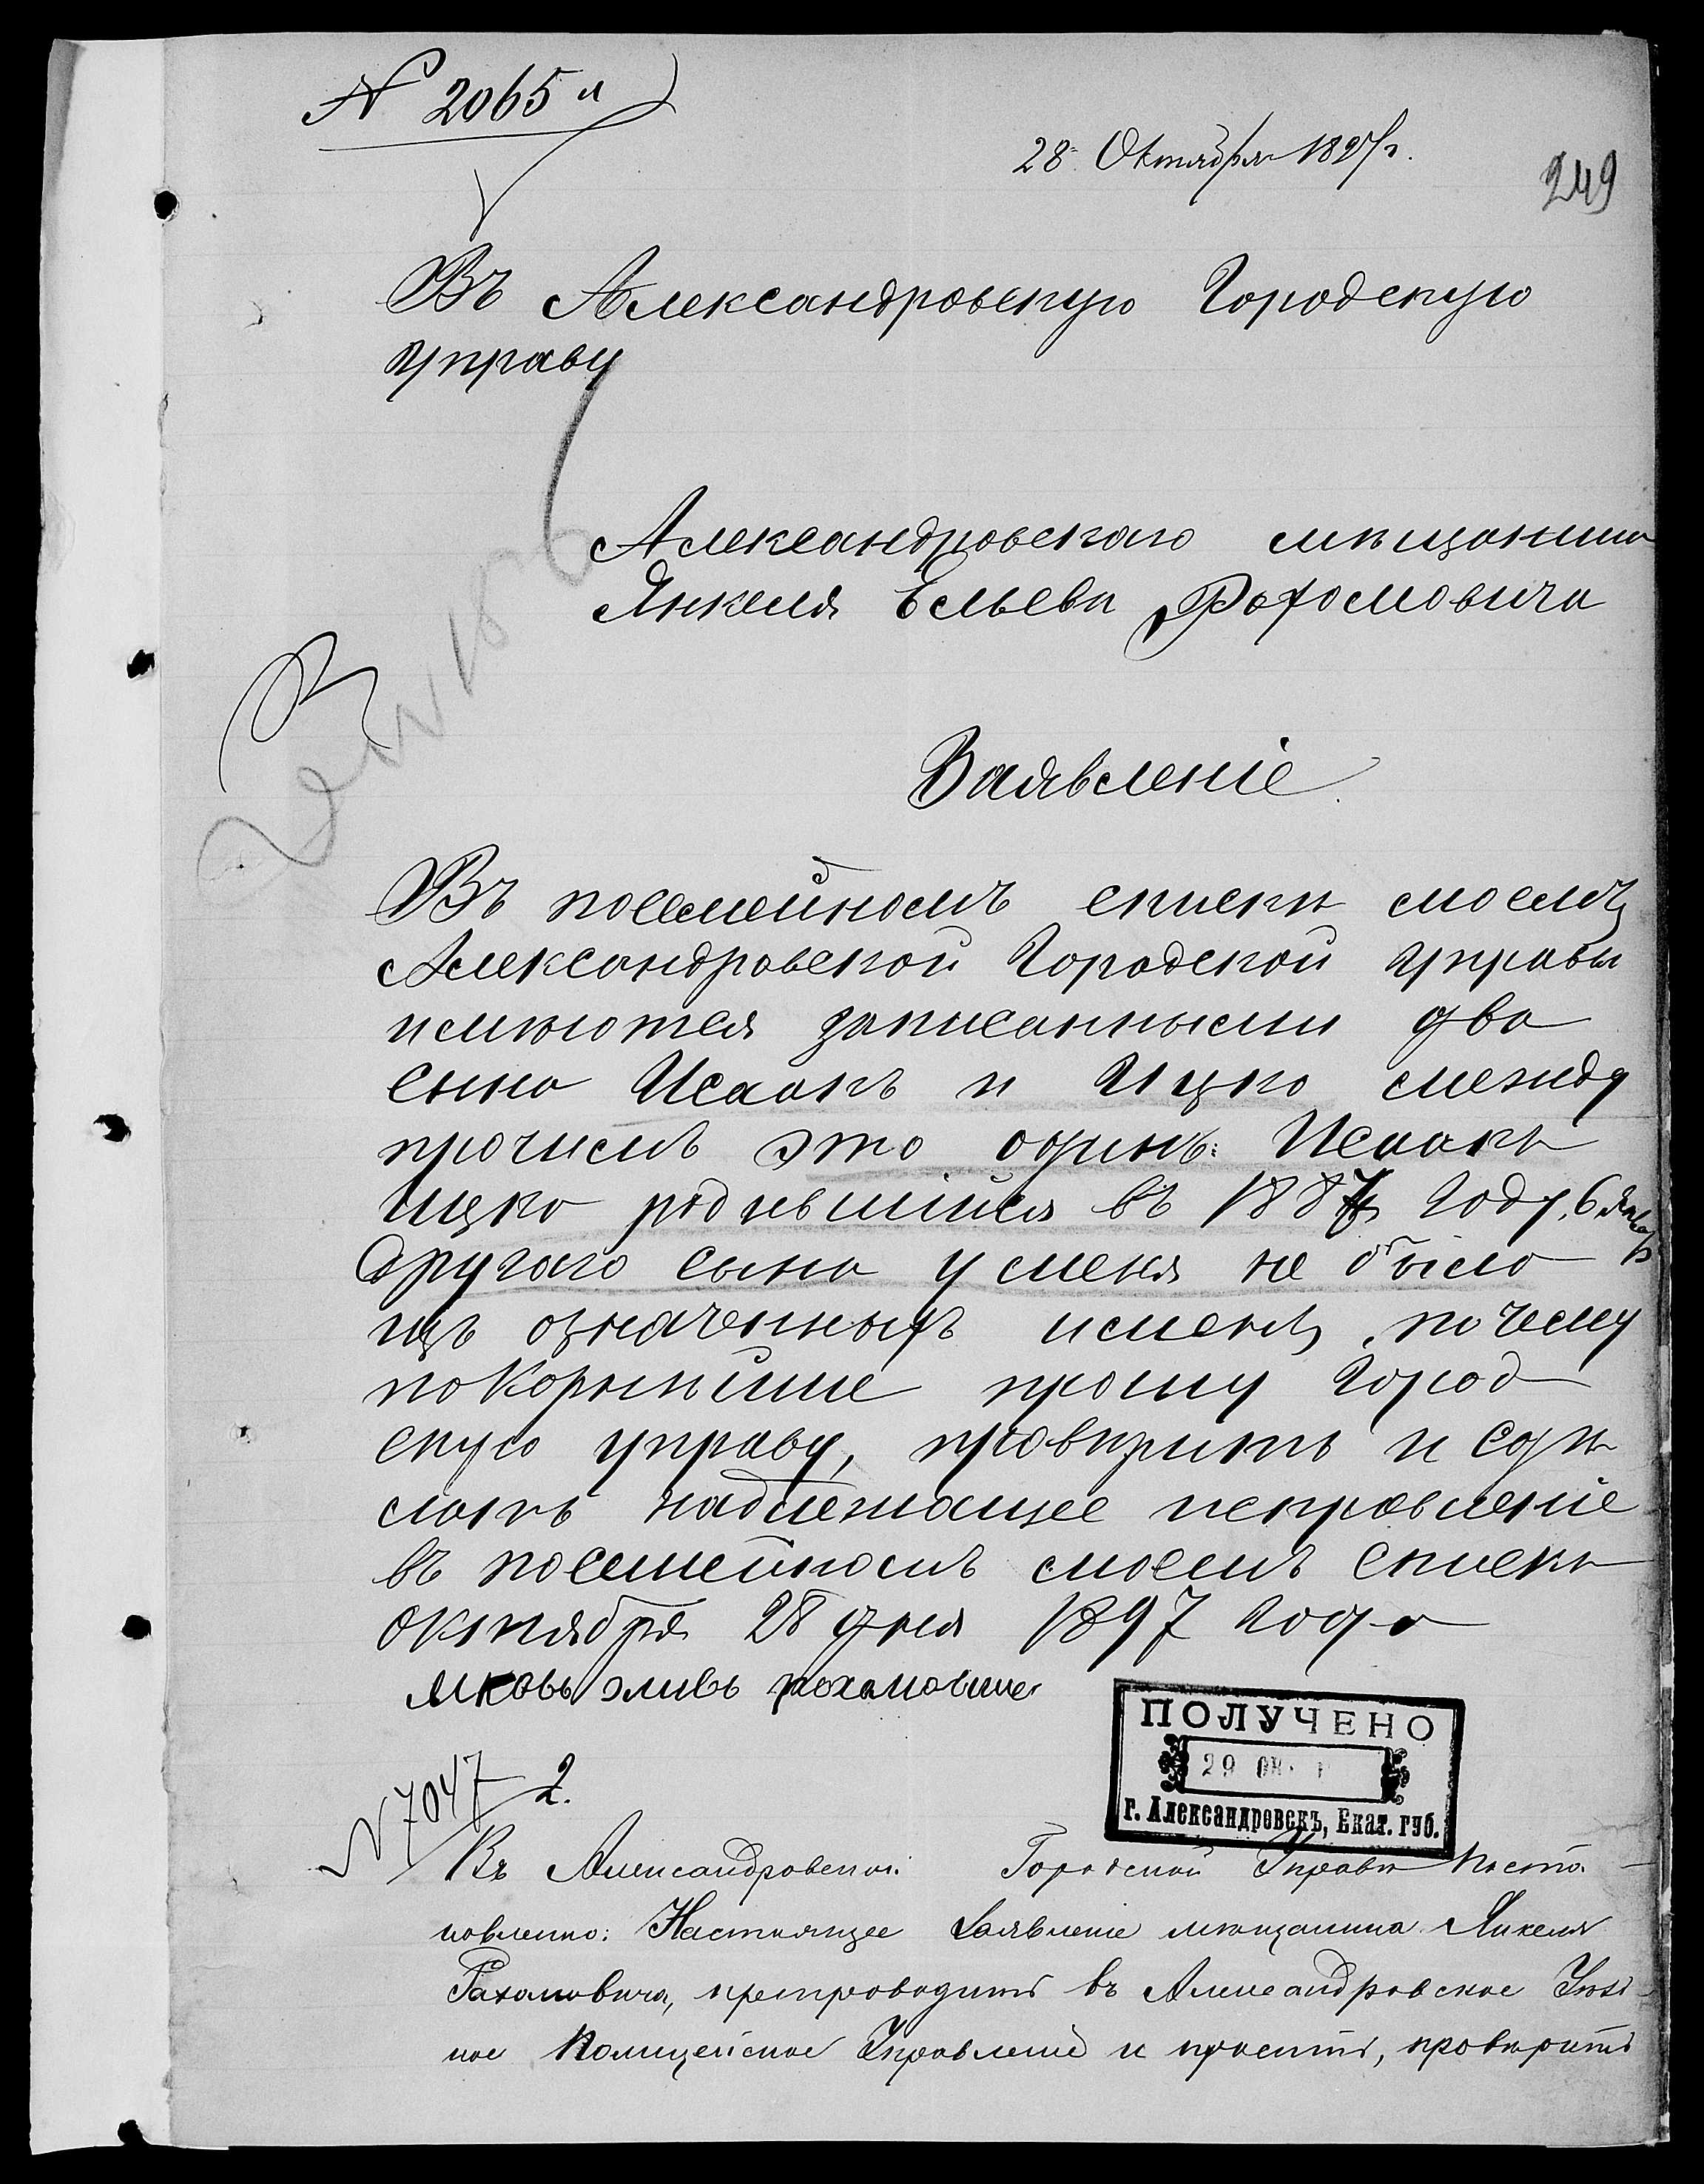 № 2065 а
28 Октября 1897 г.
249
Въ Александровскую Городскую
управу
Александровскаго мѣщанина
Янкеля Ельева Рохомовича
Заявленіе.
Въ посемейномъ спискѣ моемъ
Александровской Городской управы
имѣются записанными два
сына Исаакъ и Ицко между
прочимъ это одинъ: Исаакъ
Ицко родившійся въ 1887 году, 6 Января
другаго сына у меня не было
изъ означенныхъ именъ, почему
покорнѣйше прошу Город
скую управу, провѣрить и сдѣ
лать надлежащее исправленіе
въ посемейномъ моемъ спискѣ
октября 28 дня 1897 года
яковъ эливъ рохамович
ПОЛУЧЕНО
29 ОК
г. Александровскъ, Екат. губ.
№ 7047 2.
Въ Александровской Городской Управѣ Поста-
новлено: Настоящее Заявленіе мѣщанина Янкеля
Рахомовича, препроводить въ Александровское Уѣзд-
ное Полицейское Управленіе и просить, провѣрить